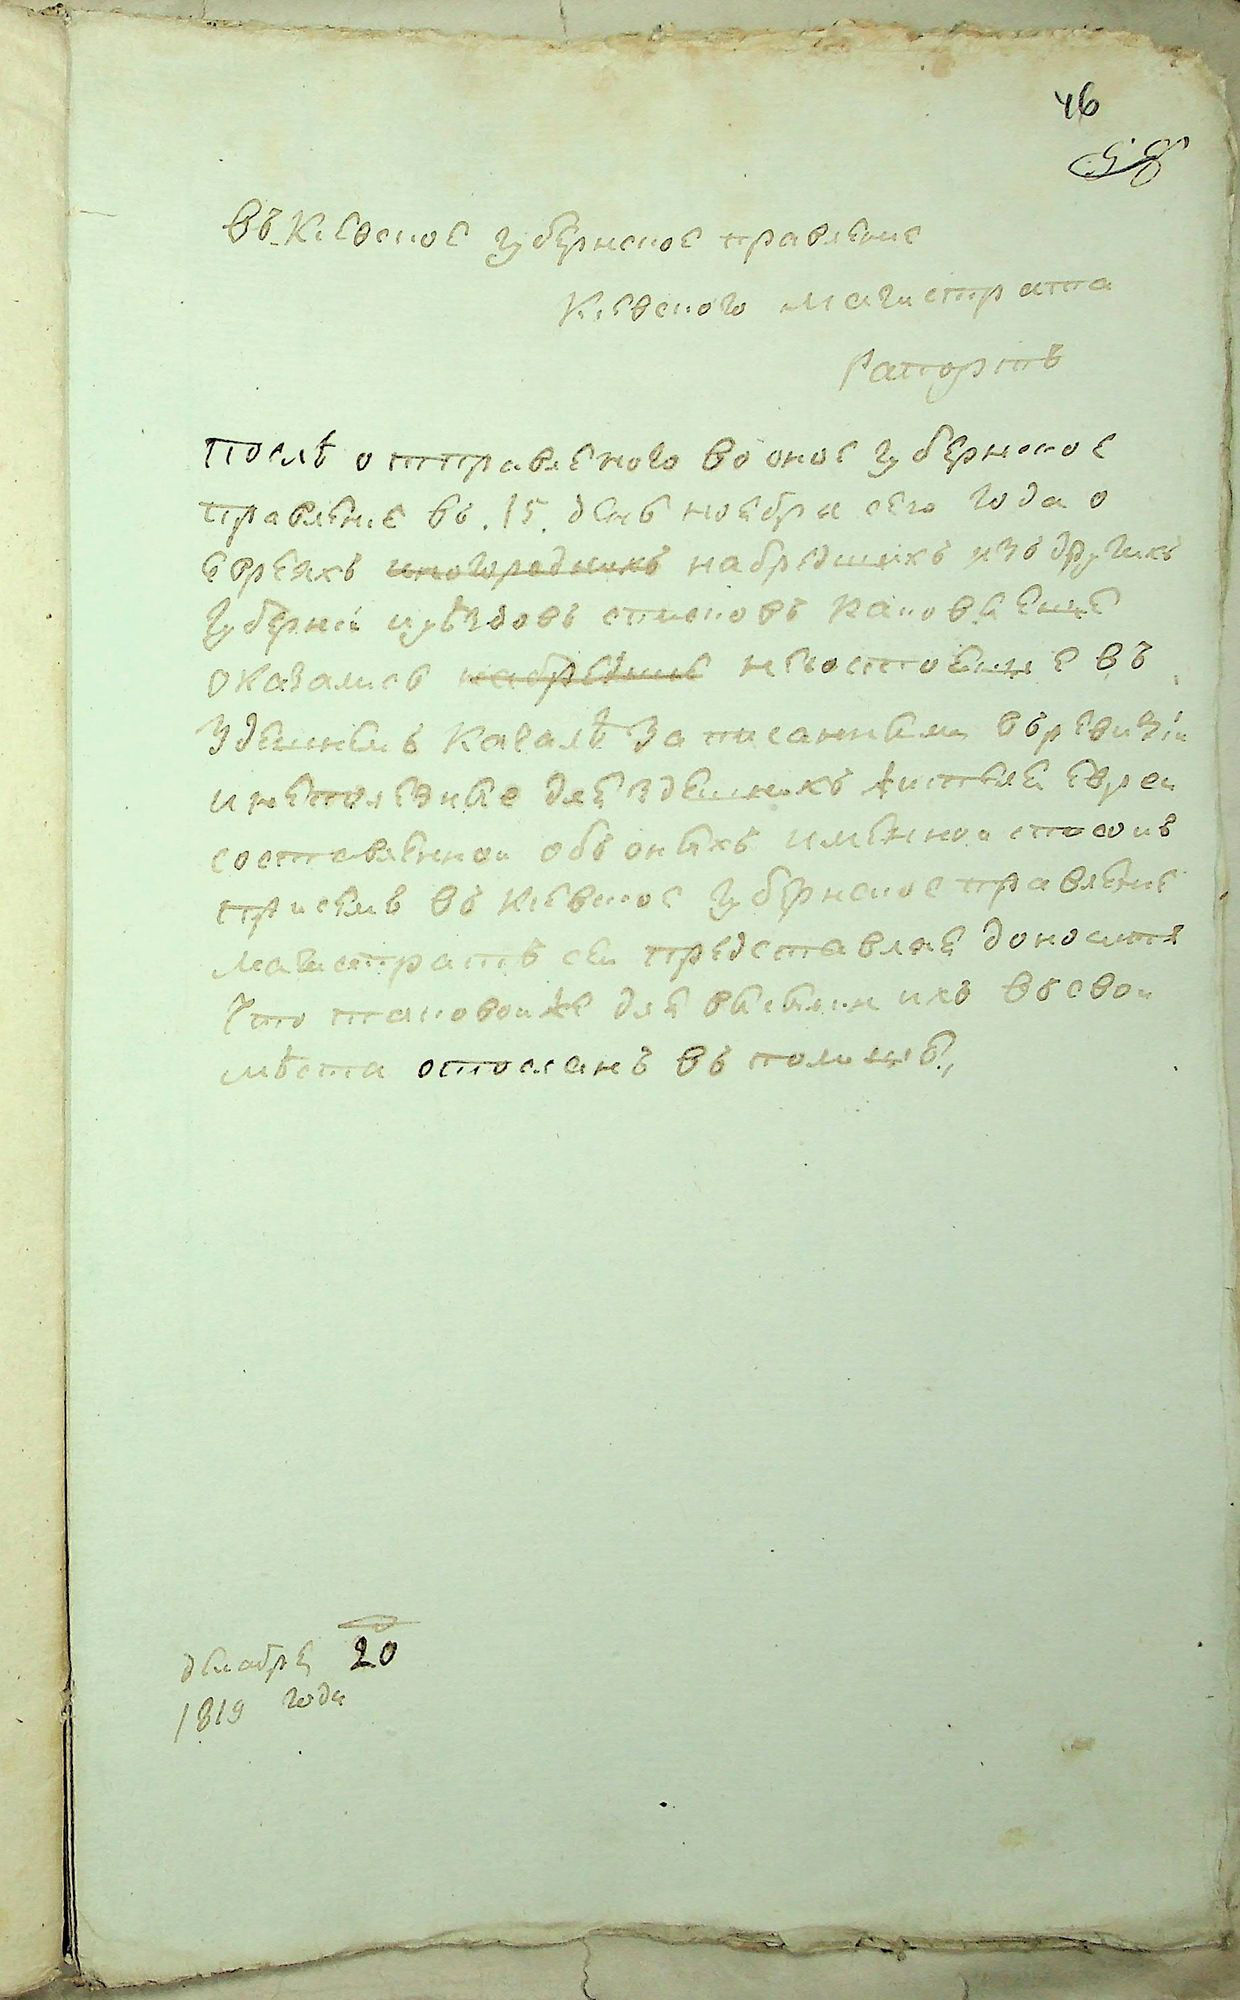 46
58
въ Киевское губернское правление
Киевского магистрата
Рапортъ
послѣ отправленого во оное губернское
правление въ .15. день ноября сего года о
евреяхъ иногородныхъ набредшихъ изъ другихъ
губерній и уѣздовъ списковъ каковые еще
оказались набредшие несостоящие въ
здешнемъ кагалѣ записанными въ ревизіи
и неполезные для здешнихъ жителей евреи
составленной объ оныхъ именной списокъ
при семъ въ Киевское губернское правление
магистратъ сеи представляя доноситъ
что таковой же для высылки ихъ въ свои
мѣста отосланъ въ полицию,,
декабря 20
1819 года